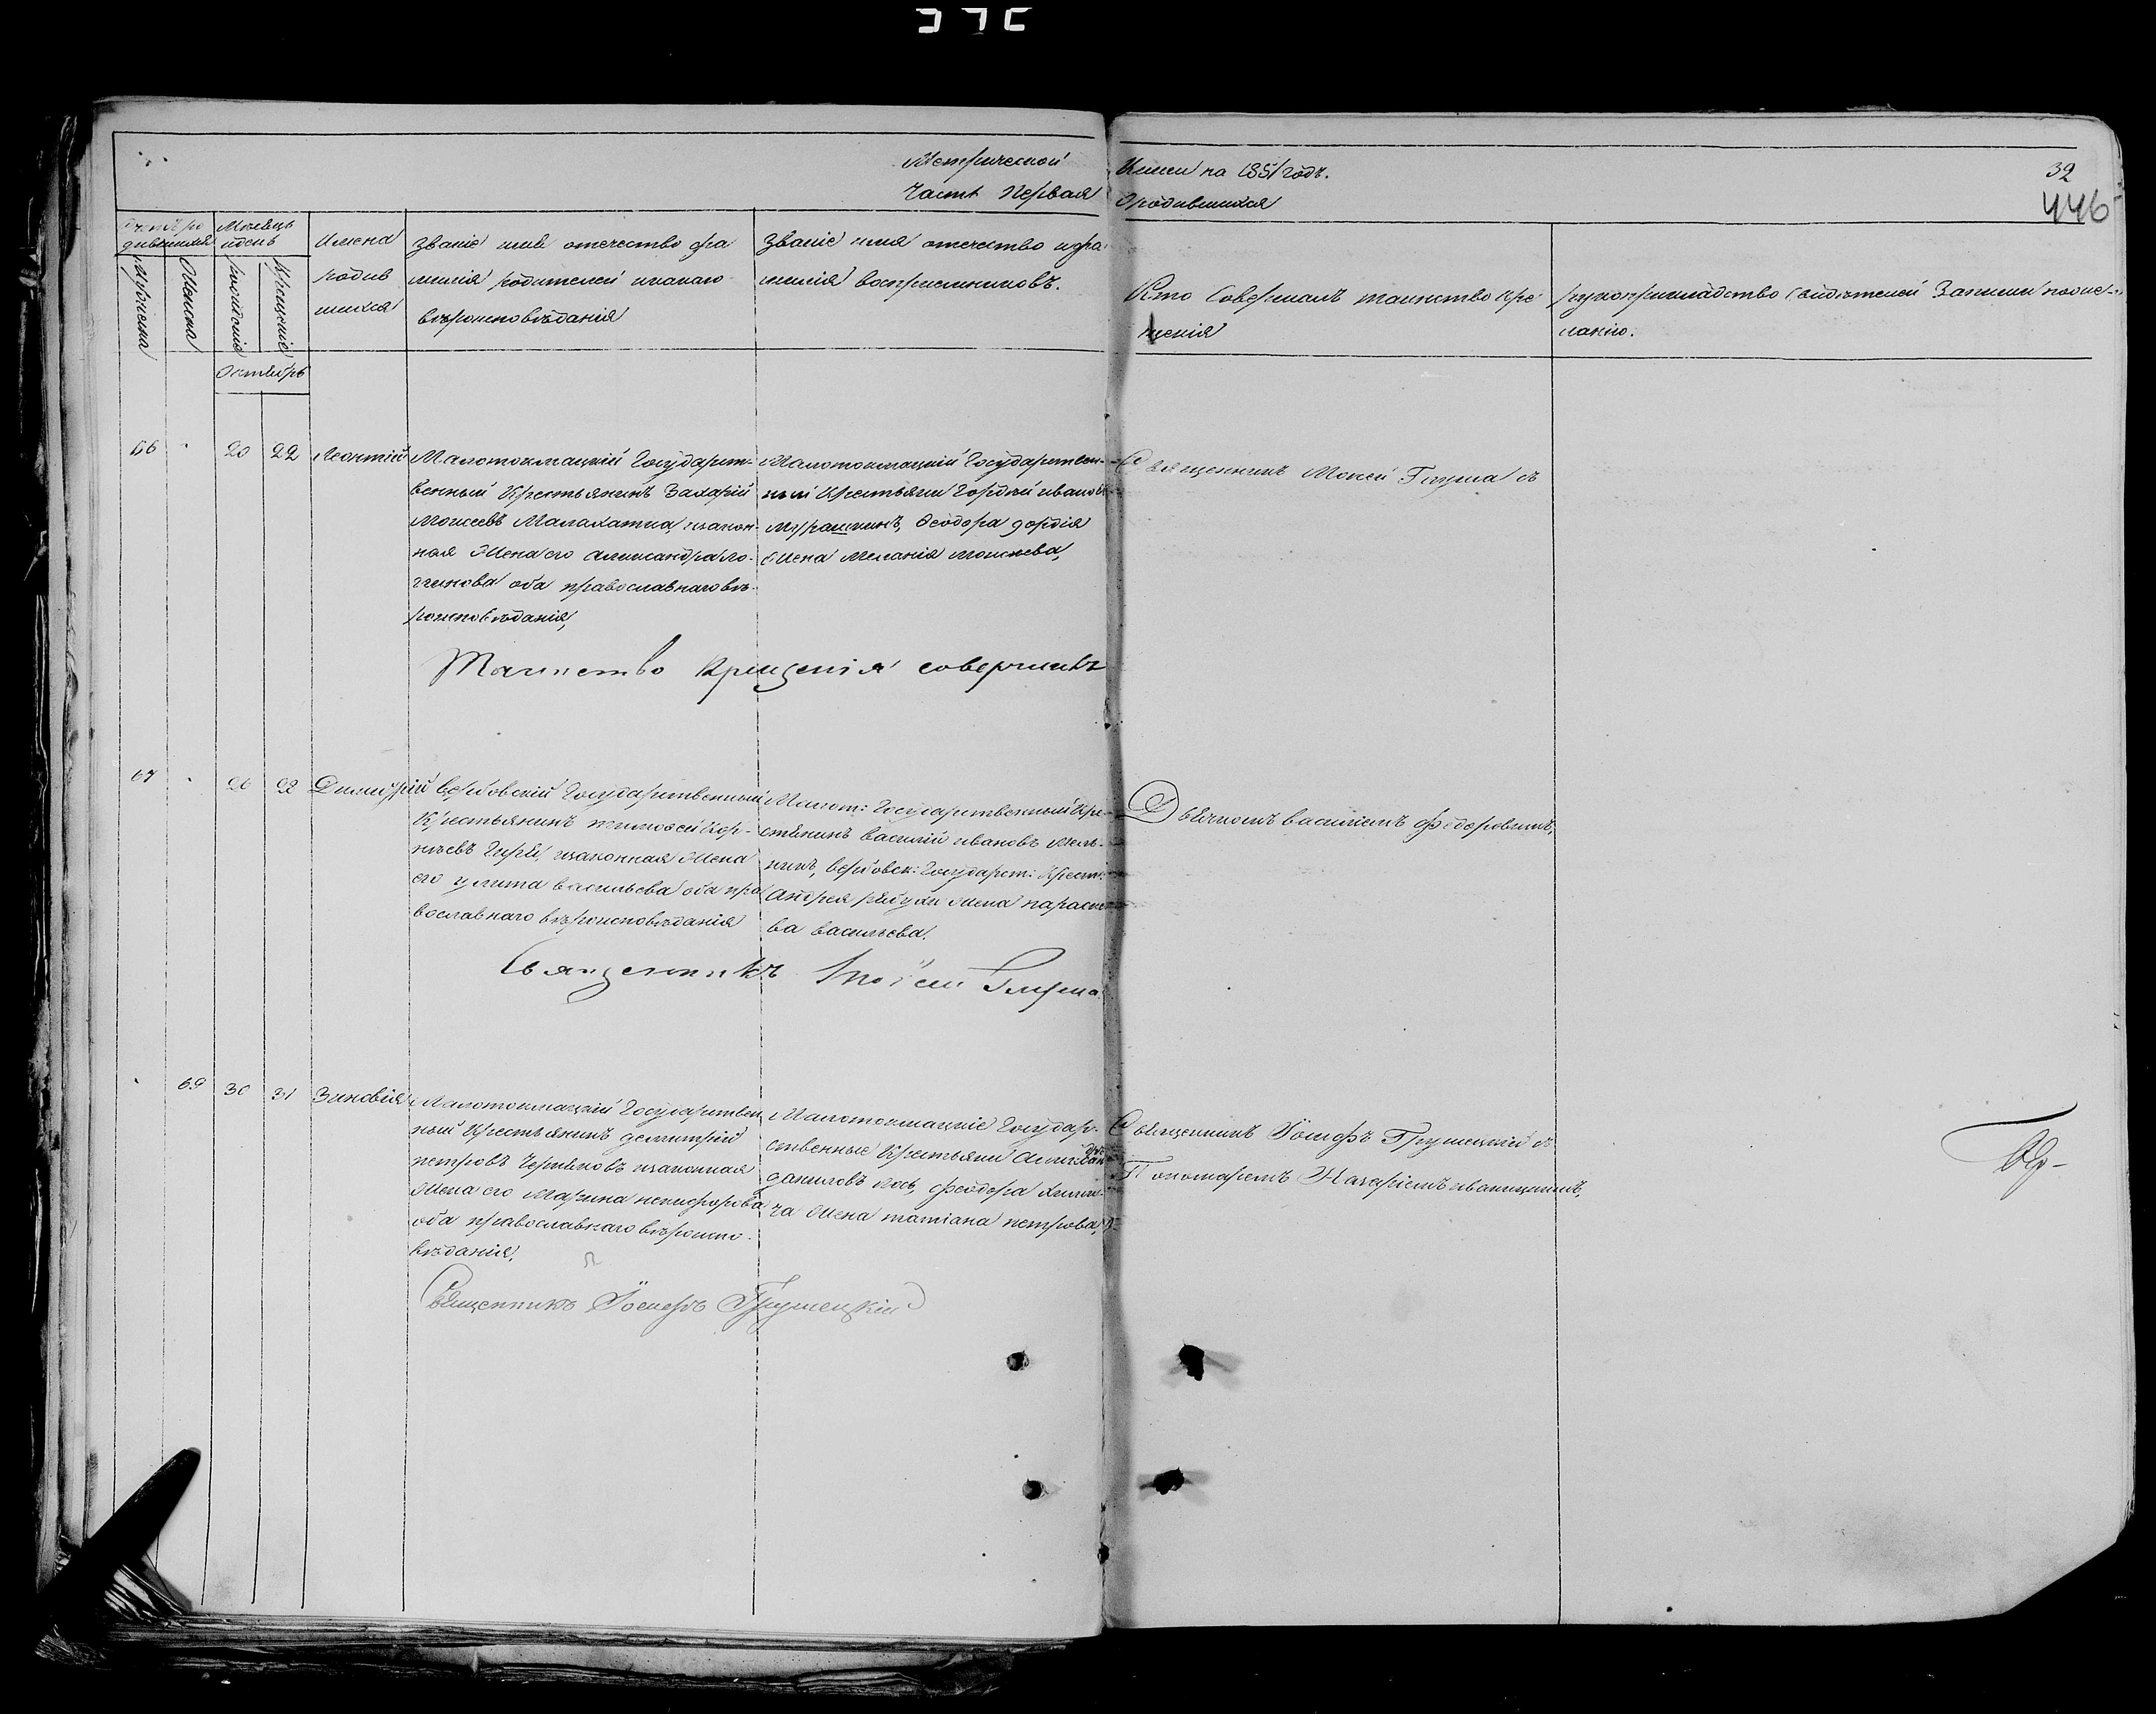 Метрической Книги на 1851 годъ. 32
Часть Первая Ородившихся 446
Счетъ ро
дившихся
Мужеска
Женска
Месяцъ
идень
рождениe
Крещение
Имена
родив
шихся
Званіе имя отечество фа
милія родителей икакаго
вѣроисповѣданія
Званіе имя отечество ифа
милія воспріемниковъ.
Кто Совершалъ таинство кре
щенія
рукоприкладство Свидѣтелей Записи поже-
ланію.
Октябрь
66 20 22 Леонтій
Малотокмацкій Государст-
венный Крестьянинъ Захарій
Моисеевъ Малахатка, изакон-
ная Жена его Александра Ло-
ггинова оба православнаго вѣ-
роисповѣданія,
Малотокмацкій Государствен-
ный Крестьяни Гордѣй ивановъ
Мурашкинъ, Ѳеодора гордія
Жена Меланія моисѣева,
Священникъ Моисей Глушаʼ съ
Таинство Крещенія совершилъ
67 20 22 Димитрій
вербовскій Государственный
Крестьянинъ тимоѳей Кор-
нѣевъ изаконная Жена
его улита васильева оба пра
вославнаго вѣроисповѣданія
Малот: Государственный Кре-
стянинъ василій ивановъ Мель-
никъ, вербовск: Государст: Крест:
Андрея рябухи Жена параске
ва васильева.
Дьячкомъ василіемъ федоровимъ,
Священникъ Моісей Глуша
69 30 31 Зиновія
Малотокмацкій Государствен
ный Крестьянинъ димитрій
петровъ изаконная
Жена его Марина никифорова
оба православнаго вѣроиспо-
вѣданія.
Малотокмацкіе Государ-
ственные Крестьяни Александръ
даниловъ феодора
Жена татіана петрова,
Священникъ Іосифъ Грушецкій съ
Пономаремъ Назаріемъ иваницкимъ,
Священникъ Іосифъ Грушецкій